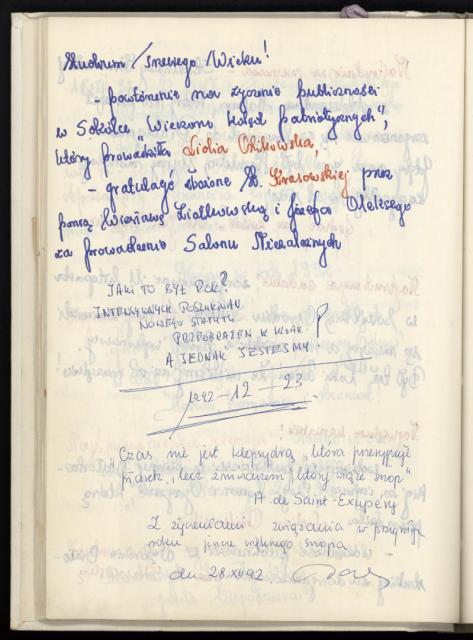 Studium Trzeciego Wieku!
- powtórzenie na życzenie publiczności
w Sokółce "Wieczoru kolęd patriotycznych",
który prowadziła Lidia
- gratulacje złożone M. Krasowskiej przez
panią Wiesławę Ziółkowską i Józefa Oleksego
za prowadzenie Salonu Niezależnych
JAKI TO BYŁ ROK?
INTENSYWNYCH POSZUKIWAŃ
NOWEGO STATUTU
PRZEOBRAŻEŃ W
A JEDNAK JESTEŚMY!
1992-12-23
Czas nie jest klepsydrą, która przesypuje
piasek, lecz żniwiarzem, który wiąże snop"
A. de Saint-Exupery
Z życzeniami związania w przyszłym
roku snopa
dn 28.XII.92